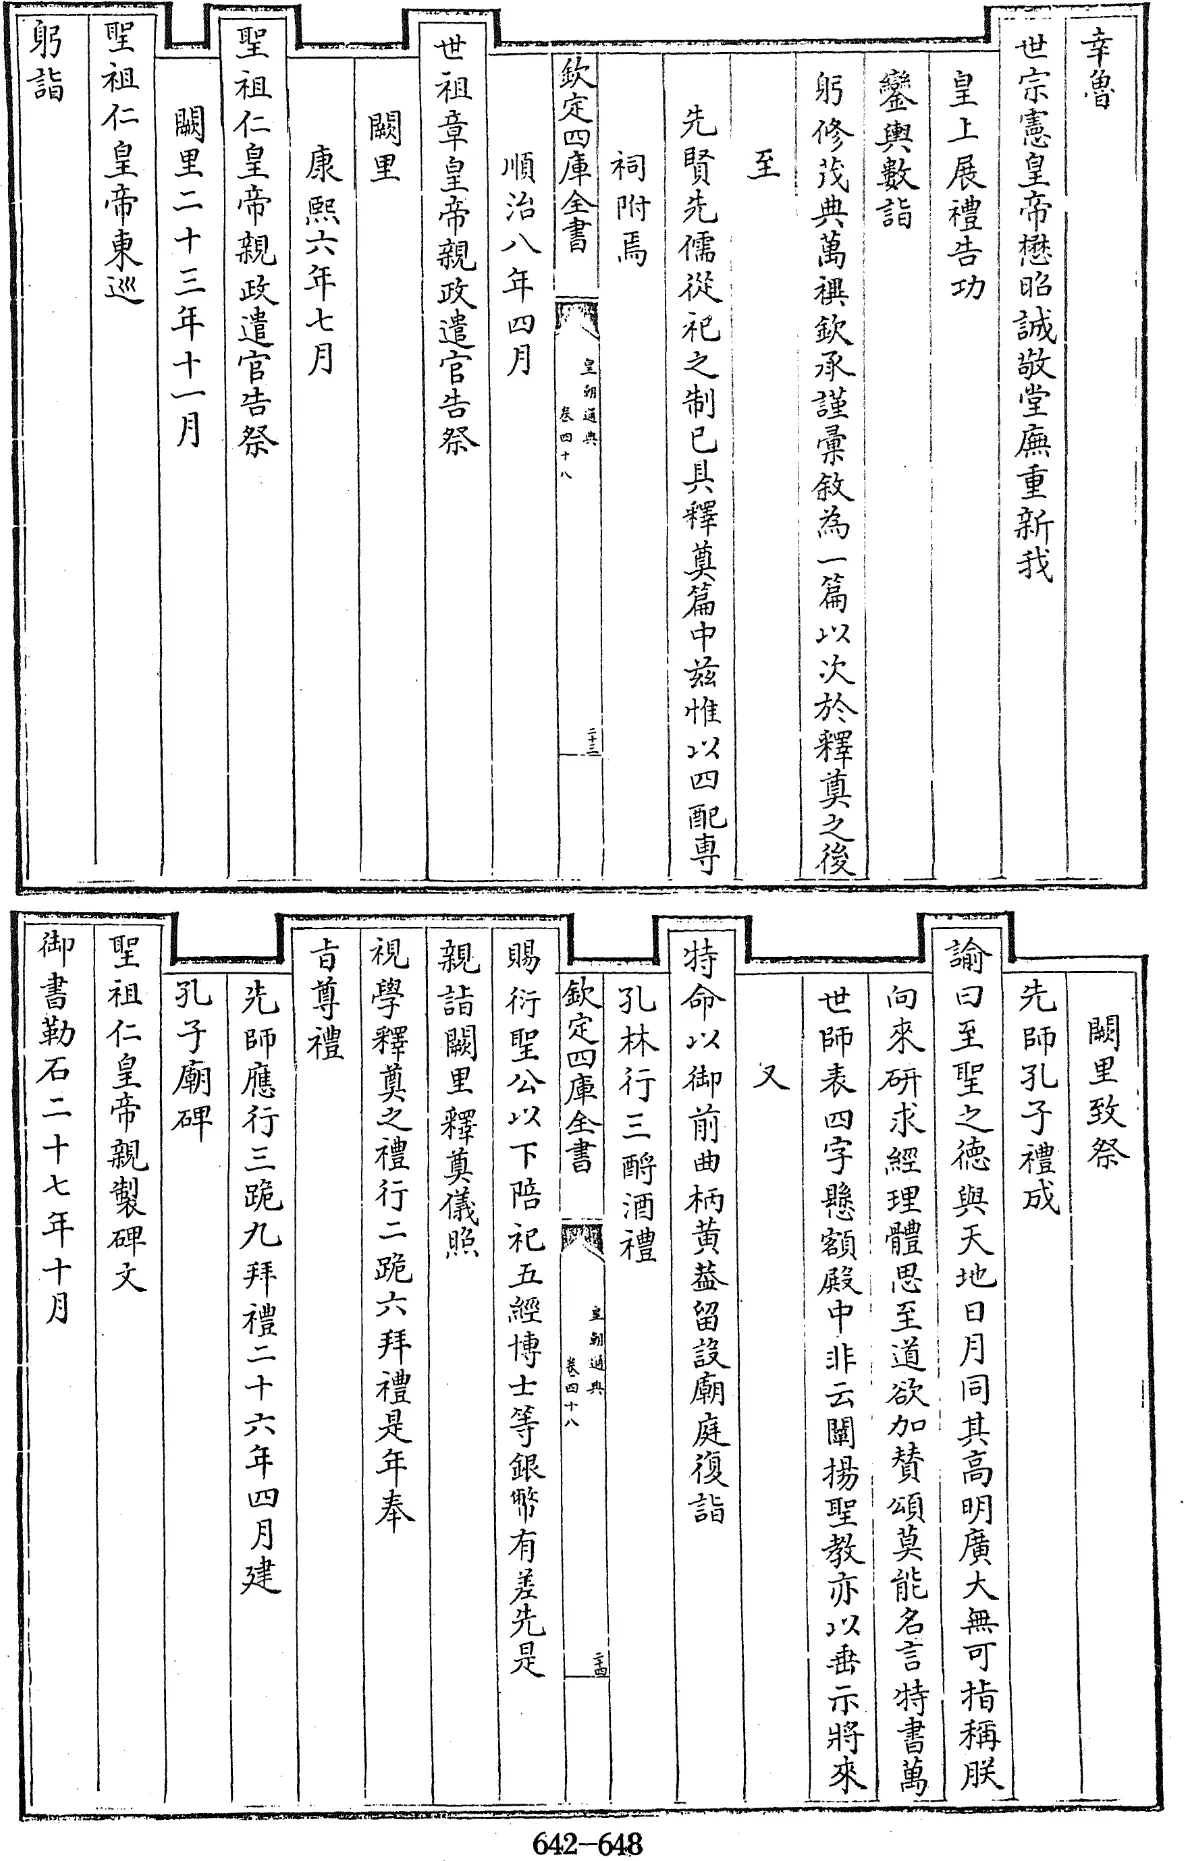 幸魯
世宗憲皇帝懋昭誠敬堂廡重新我
皇上展禮告功
鑾輿數詣
躬修茂典萬禩欽承謹彚敘為一篇以次於釋奠之後
至
先賢先儒從祀之制已具釋奠篇中茲惟以四配專
祠附焉
欽定四庫全書
皇朝通典
卷四十八
二十三
順治八年四月
世祖章皇帝親政遣官告祭
闕里
康熙六年七月
聖祖仁皇帝親政遣官告祭
闕里二十三年十一月
聖祖仁皇帝東巡
躬詣
闕里致祭
先師孔子禮成
諭曰至聖之德與天地日月同其高明廣大無可指稱朕
向來研求經理體思至道欲加賛頌莫能名言特書萬
世師表四字懸額殿中非云闡揚聖教亦以垂示將來
又
特命以御前曲柄黃葢留設廟庭復詣
孔林行三酹酒禮
欽定四庫全書
皇朝通典
卷四十八
二十四
賜衍聖公以下陪祀五經博士等銀幣有差先是
親詣闕里釋奠儀照
視學釋奠之禮行二跪六拜禮是年奉
旨尊禮
先師應行三跪九拜禮二十六年四月建
孔子廟碑
聖祖仁皇帝親製碑文
御書勒石二十七年十月
642-648